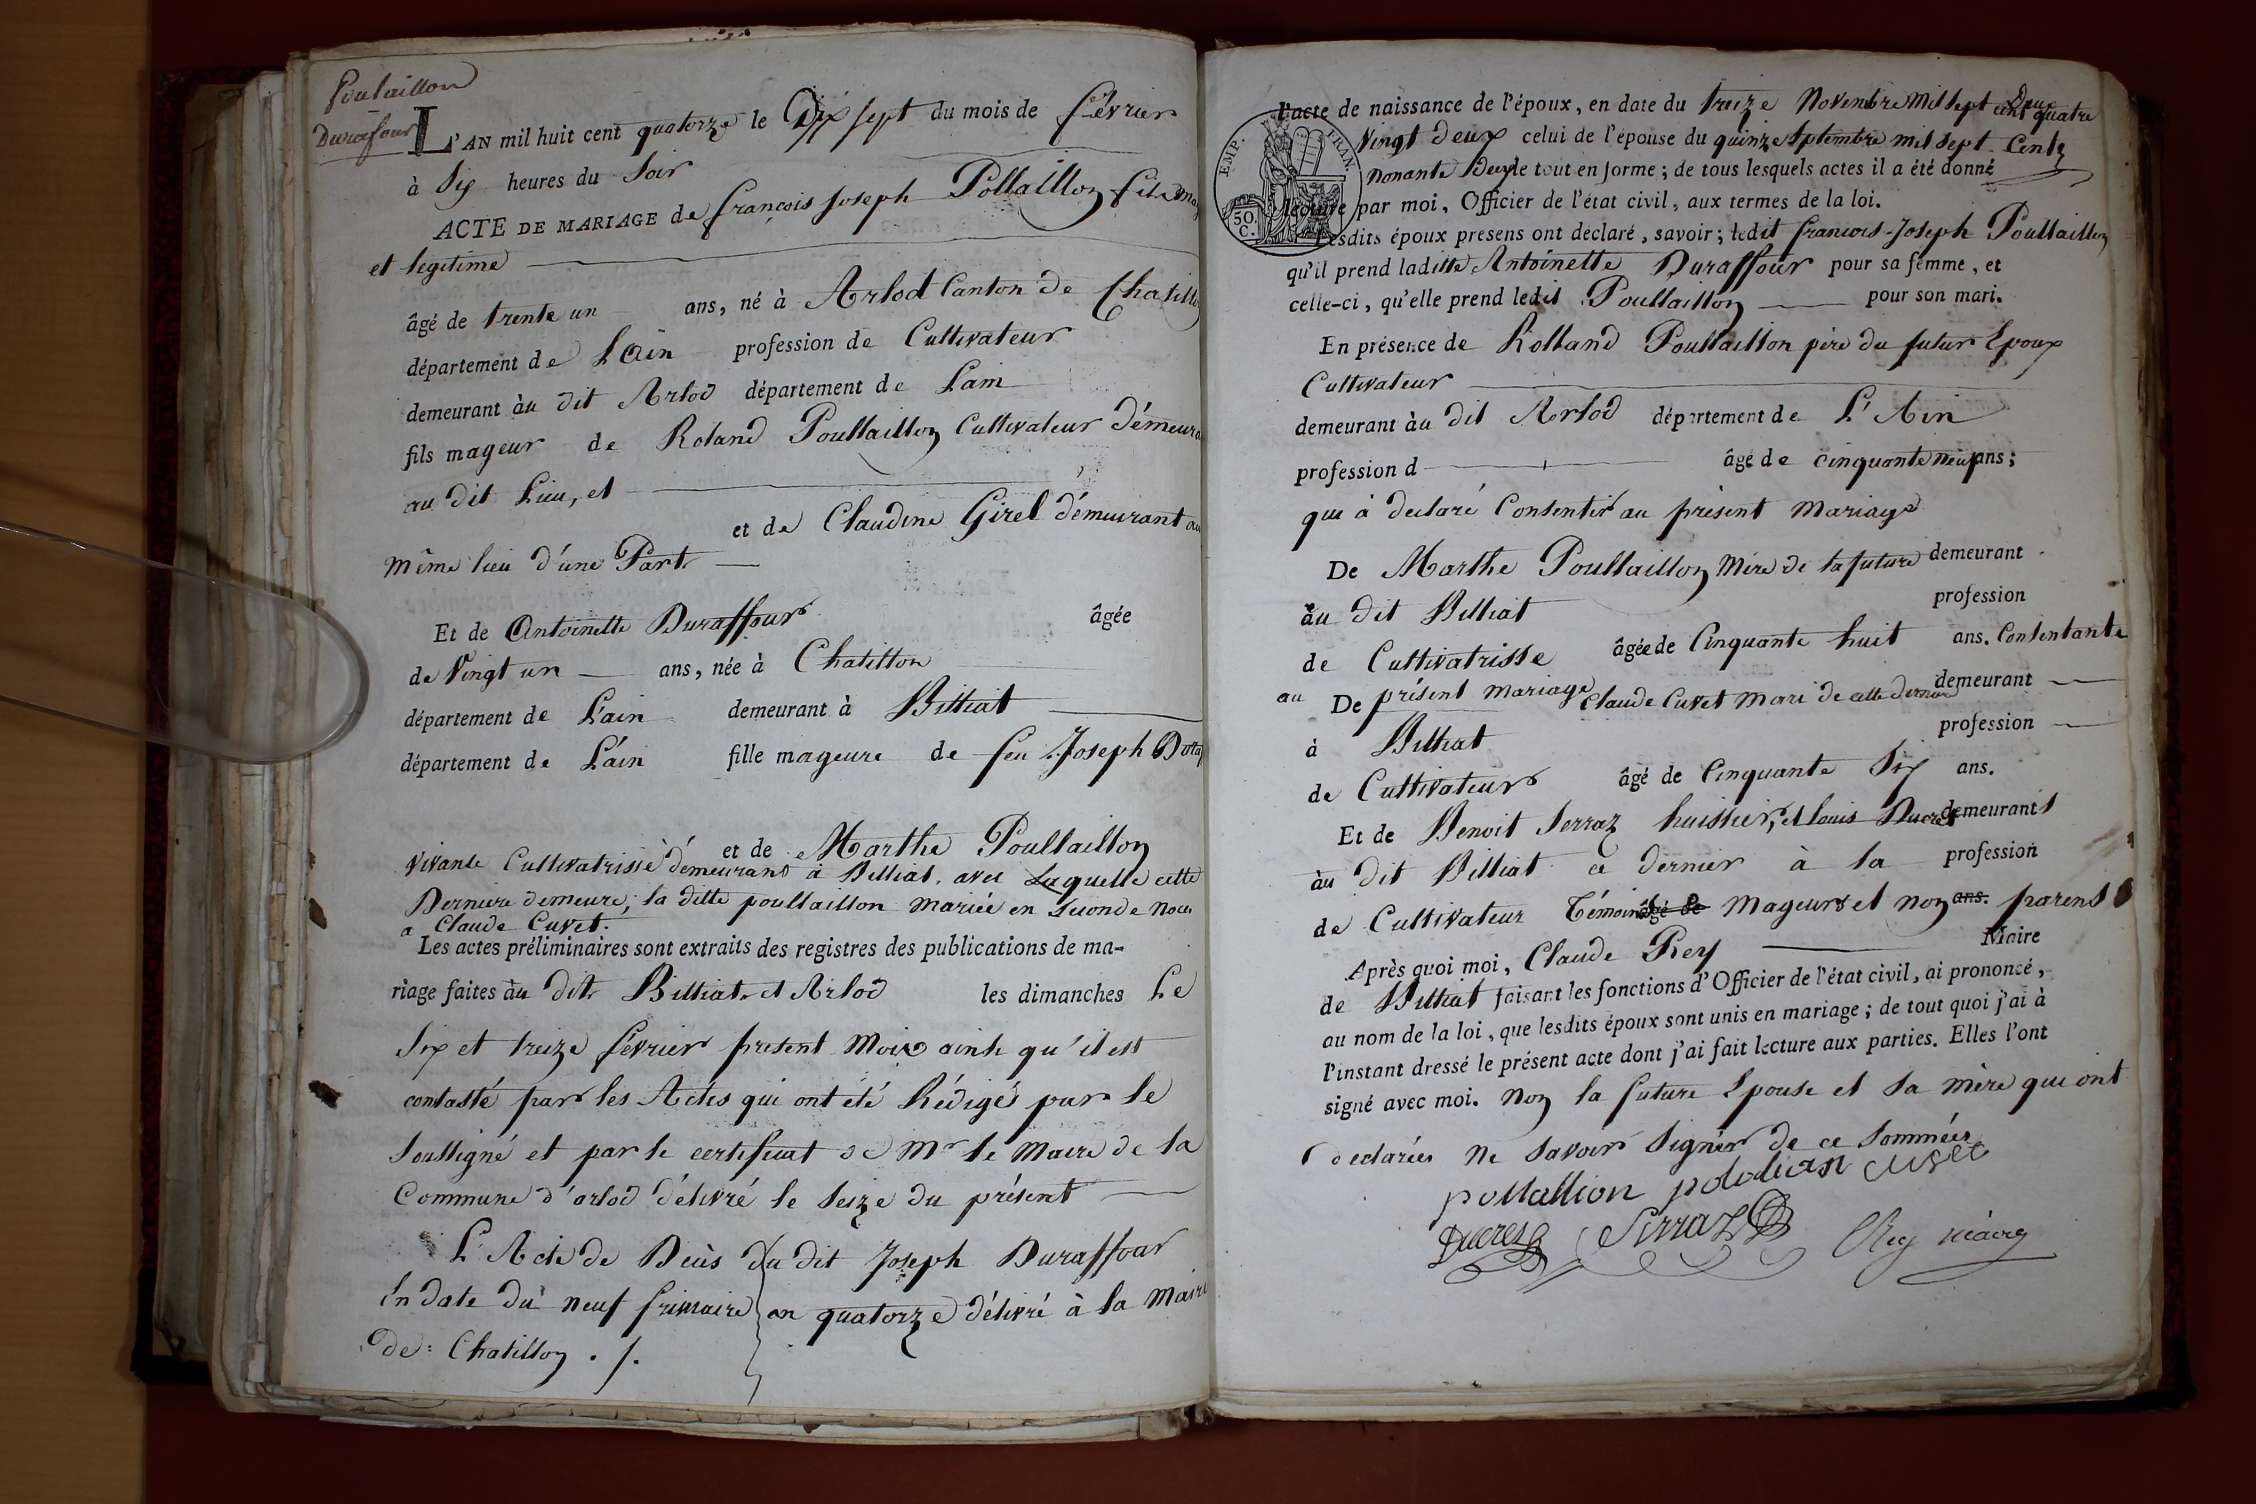 Poulaillon
Durafour
L'AN mil huit cent quatorze le Dix sept du mois de février
à Six heures du Soir
ACTE DE MARIAGE de françois Joseph Pollaillon fils maj
et legitime
âgé de trente un ans, né à Arlod Canton de Chatillon
département de L'ain profession de Cultivateur
demeurant àu dit Arlod département de L'ain
fils mageur de Roland Poullaillon Cultivateur démeurant
au dit Lieu, et
et de Claudine Girel démeurant au
même lieu d'une Part
Et de Antoinette Duraffour âgée
de Vingt un ans, née à Chatillon
département de L'ain demeurant à Billiat
département de L'ain fille mageure de feu Joseph
et de Marthe Poullaillon
Vivante Cultivatrisse démeurant à Billiat, avec Laquelle cette
Derniere demeure; la ditte poullaillon mariée en seconde Noces
a Claude Cuvet.
Les actes préliminaires sont extraits des registres des publications de ma-
riage faites àu dit Billiat et Arlod les dimanches Le
Six et treize février présent Mois ainsi qu'il est
contasté par les Actes qui ont été Rédigés par le
Soussigné et par le certificat de Mr le Maire de la
Commune d'arlod délivré le Seize du présent
L'Acte de Décès du dit Joseph Duraffour
En date du neuf frimaire an quatorze délivré à la Mairie
de Chatillon ./.
EMP. FRAN.
50. C.
l'acte de naissance de l'époux, en date du treize Novembre Mil Sept cent quatre
Vingt deux celui de l'épouse du quinze Septembre mil sept Cents
nonante Deux le tout en forme; de tous lesquels actes il a été donné
lecture par moi, Officier de l'état civil, aux termes de la loi.
Lesdits époux presens ont déclaré, savoir; ledit francois-Joseph Poullaillon
qu'il prend laditte Antoinette Duraffour pour sa femme, et
celle-ci, qu'elle prend ledit Poullaillon pour son mari.
En présence de Rolland Poullaillon père du futur Epoux
Cultivateur
demeurant àu dit Arlod département de L'Ain
profession d âgé de cinquante neuf ans;
qui à declaré Consentir au présent Mariage
De Marthe Poullaillon Mère de la future demeurant
àu dit Billiat profession
de Cultivatrisse âgée de Cinquante huit ans. Consentante
au De présent mariage Claude Cuvet Mari de cette derniere demeurant
à Billiat profession
de Cultivateur âgé de Cinquante Six ans.
Et de Benoit Serraz huissier, et Louis Ducret demeurants
àu dit Billiat ce dernier à la profession
de Cultivateur Témoins âgé de Mageurs et non ans. parens
Après quoi moi, Claude Rey Maire
de Billiat faisant les fonctions d'Officier de l'état civil, ai prononcé,
au nom de la loi, que lesdits époux sont unis en mariage; de tout quoi j'ai à
l'instant dressé le présent acte dont j'ai fait lecture aux parties. Elles l'ont
signé avec moi. Non la future Epouse et sa mère qui ont
declarées Ne Savoir Signér de ce Sommées
pollallion cuset
Ducret Serraz Rey